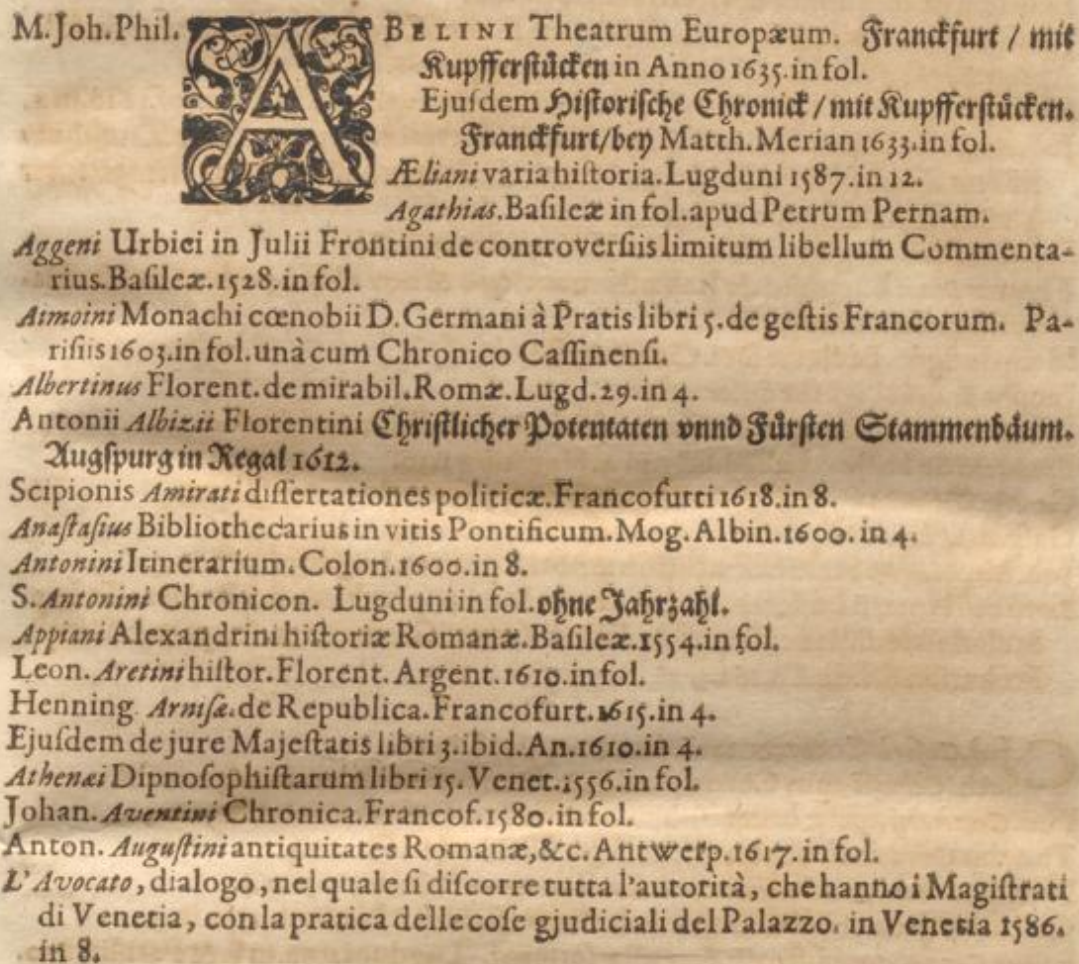 M. Joh. Phil. ABELINI Theatrum Europæum. Franckfurt / mit
Kupfferstücken in Anno 1635. in fol.
Ejuſdem Hiſtoriſche Chronick / mit Kupfferſtücken.
Franckfurt / bey Matth. Merian 1633. in fol.
Æliani varia hiſtoria. Lugduni 1587. in 12.
Agathias. Baſileæ in fol. apud Petrum Pernam.
Aggeni Urbici in Julii Frontini de controverſiis limitum libellum Commenta-
rius. Baſileæ. 1528. in fol.
Aimoini Monachi cœnobii D. Germani à Pratis libri 5. de geſtis Francorum. Pa-
riſiis 1603. in fol. unà cum Chronico Caſſinenſi.
Albertinus Florent. de mirabil. Romæ. Lugd. 29. in 4.
Antonii Albizii Florentini Chriſtlicher Potentaten vnnd Fürſten Stammenbäum.
Augſpurg in Regal 1612.
Scipionis Amirati diſſertationes politicæ. Francofurti 1618. in 8.
Anaſtaſius Bibliothecarius in vitis Pontificum. Mog. Albin. 1600. in 4.
Antonini Itinerarium. Colon. 1600. in 8.
S. Antonini Chronicon. Lugduni in fol. ohne Jahrzahl.
Appiani Alexandrini hiſtoriæ Romanæ. Baſileæ. 1554. in fol.
Leon. Aretini hiſtor. Florent. Argent. 1610. in fol.
Henning Arniſæ. de Republica. Francofurt. 1615. in 4.
Ejuſdem de jure Majeſtatis libri 3. ibid. An. 1610. in 4.
Athenæi Dipnoſophiſtarum libri 15. Venet. 1556. in fol.
Johan. Aventini Chronica. Francof. 1580. in fol.
Anton. Auguſtini antiquitates Romanæ, &c. Antwerp. 1617. in fol.
L'Avocato, dialogo, nel quale ſi diſcorre tutta l'autorità, che hanno i Magiſtrati
di Venetia, con la pratica delle coſe gjudiciali del Palazzo. in Venetia 1586.
in 8.